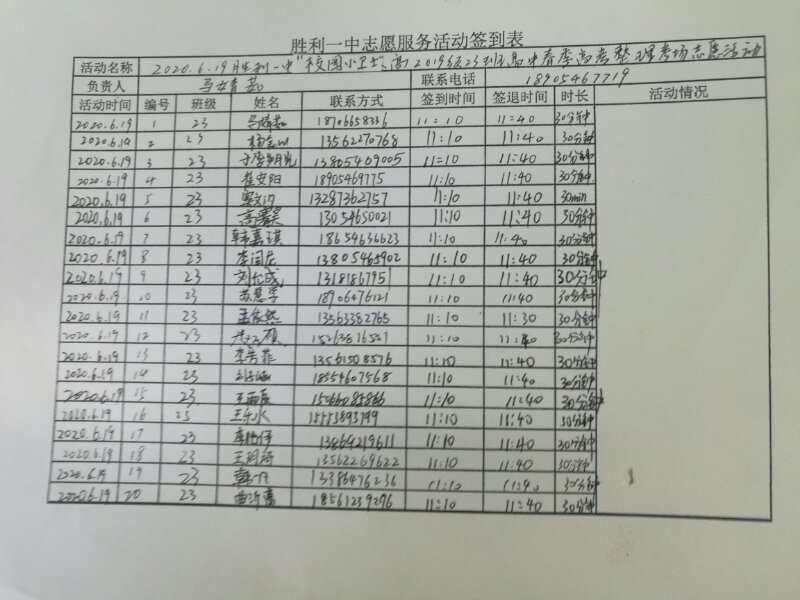 胜利一中志愿服务活动签到表
活动名称 2020.6.19胜利一中"校园小卫士" 2019级23班 春季高考整理考场志愿活动
负责人 联系电话 18905467719
活动时间 编号 班级 姓名 联系方式 签到时间 签退时间 时长 活动情况
2020.6.19 1 23 18706658336 11:10 11:40 30分钟
2020.6.19 2 23 13562270768 11:10 11:40 30分钟
2020.6.19 3 23 13805409005 11:10 11:40 30分钟
2020.6.19 4 23 崔安阳 18905469775 11:10 11:40 30分钟
2020.6.19 5 23 13287362757 11:10 11:40 30min
2020.6.19 6 23 13054650021 11:10 11:40 30分钟
2020.6.19 7 23 韩嘉琪 18654636623 11:10 11:40 30分钟
2020.6.19 8 23 李闰尼 13805465902 11:10 11:40 30分钟
2020.6.19 9 23 刘允成 1318186795 11:10 11:40 30分钟
2020.6.19 10 23 18906476121 11:10 11:40 30分钟
2020.6.19 11 23 孟依然 13563382765 11:10 11:30 30分钟
2020.6.19 12 23 15263816521 11:10 11:40 30分钟
2020.6.19 13 23 李芳菲 13561508576 11:10 11:40 30分钟
2020.6.19 14 23 18554607568 11:10 11:40 30分钟
2020.6.19 15 23 15066085866 11:10 11:40 30分钟
2020.6.19 16 23 王乐水 11:10 11:40 30分钟
2020.6.19 17 23 13469219611 11:10 11:40 30分钟
2020.6.19 18 23 13562269622 11:10 11:40 30分钟
2020.6.19 19 23 13386476236 11:10 11:40 30分钟
2020.6.19 20 23 18561239296 11:10 11:40 30分钟